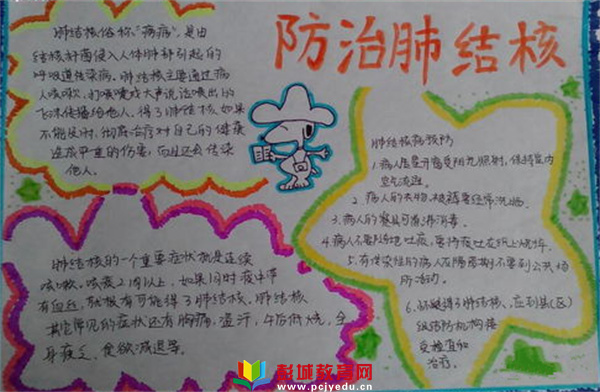 防治肺结核
肺结核俗称“痨病”,是由
结核杆菌侵入人体肺部引起的
呼吸道传染病。肺结核主要通过病
人咳嗽、打喷嚏或大声说话喷出的
飞沫传播给他人。得了肺结核如果
不能及时、彻底治疗对自己的健康
造成严重的伤害,而且还会传染
他人。
肺结核病预防
1.病人居室开窗受阳光照射,保持室内
空气流通。
2.病人的衣物、被褥要经常洗晒。
3.病人的餐具可煮沸消毒。
4.病人不要随地吐痰,要将痰吐在纸上烧掉。
5.有传染性的病人在隔离期不要到公共场
所活动。
6.怀疑得了肺结核,应到县(区)
级结防机构接
受检查和
治疗。
肺结核的一个重要症状就是连续
咳嗽、咳痰2周以上,如果同时痰中带
有血丝,就极有可能得了肺结核。肺结核
其它常见的症状还有胸痛,盗汗,午后低烧,全
身疲乏、食欲减退等。
彭城教育网
www.pcjyedu.cn